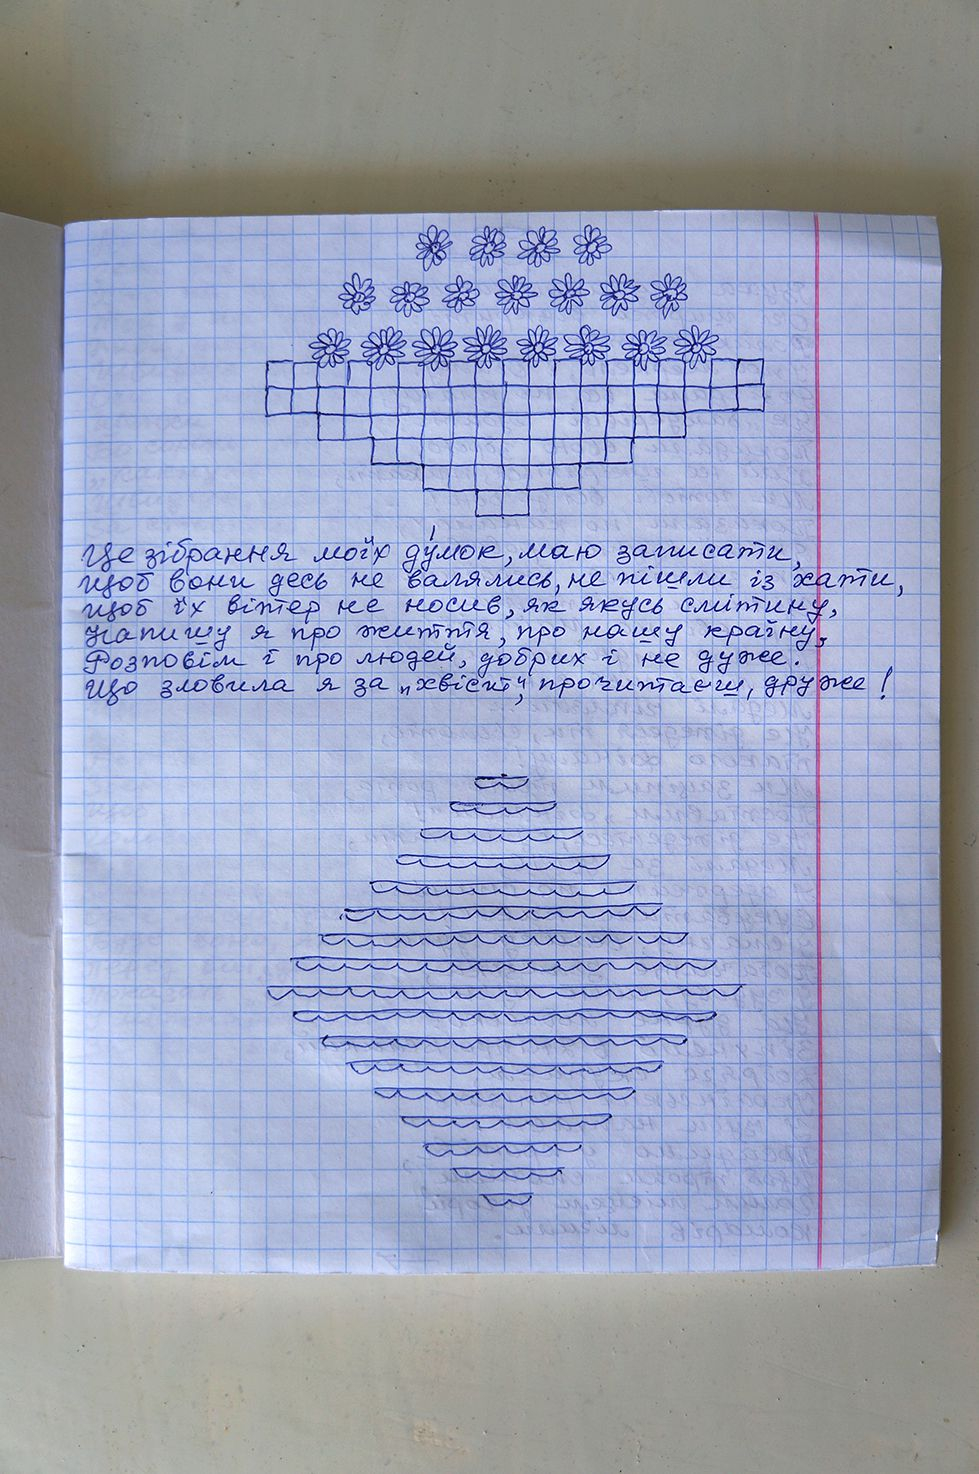 Це зібрання моїх думок, маю записати,
щоб вони десь не валялись, не пішли із хати,
щоб їх вітер не носив, як якусь смітину,
Напишу я про життя, про нашу країну,
Розповім і про людей, добрих і не дуже.
Що зловила я за „хвіст“, прочитаєш, друже!